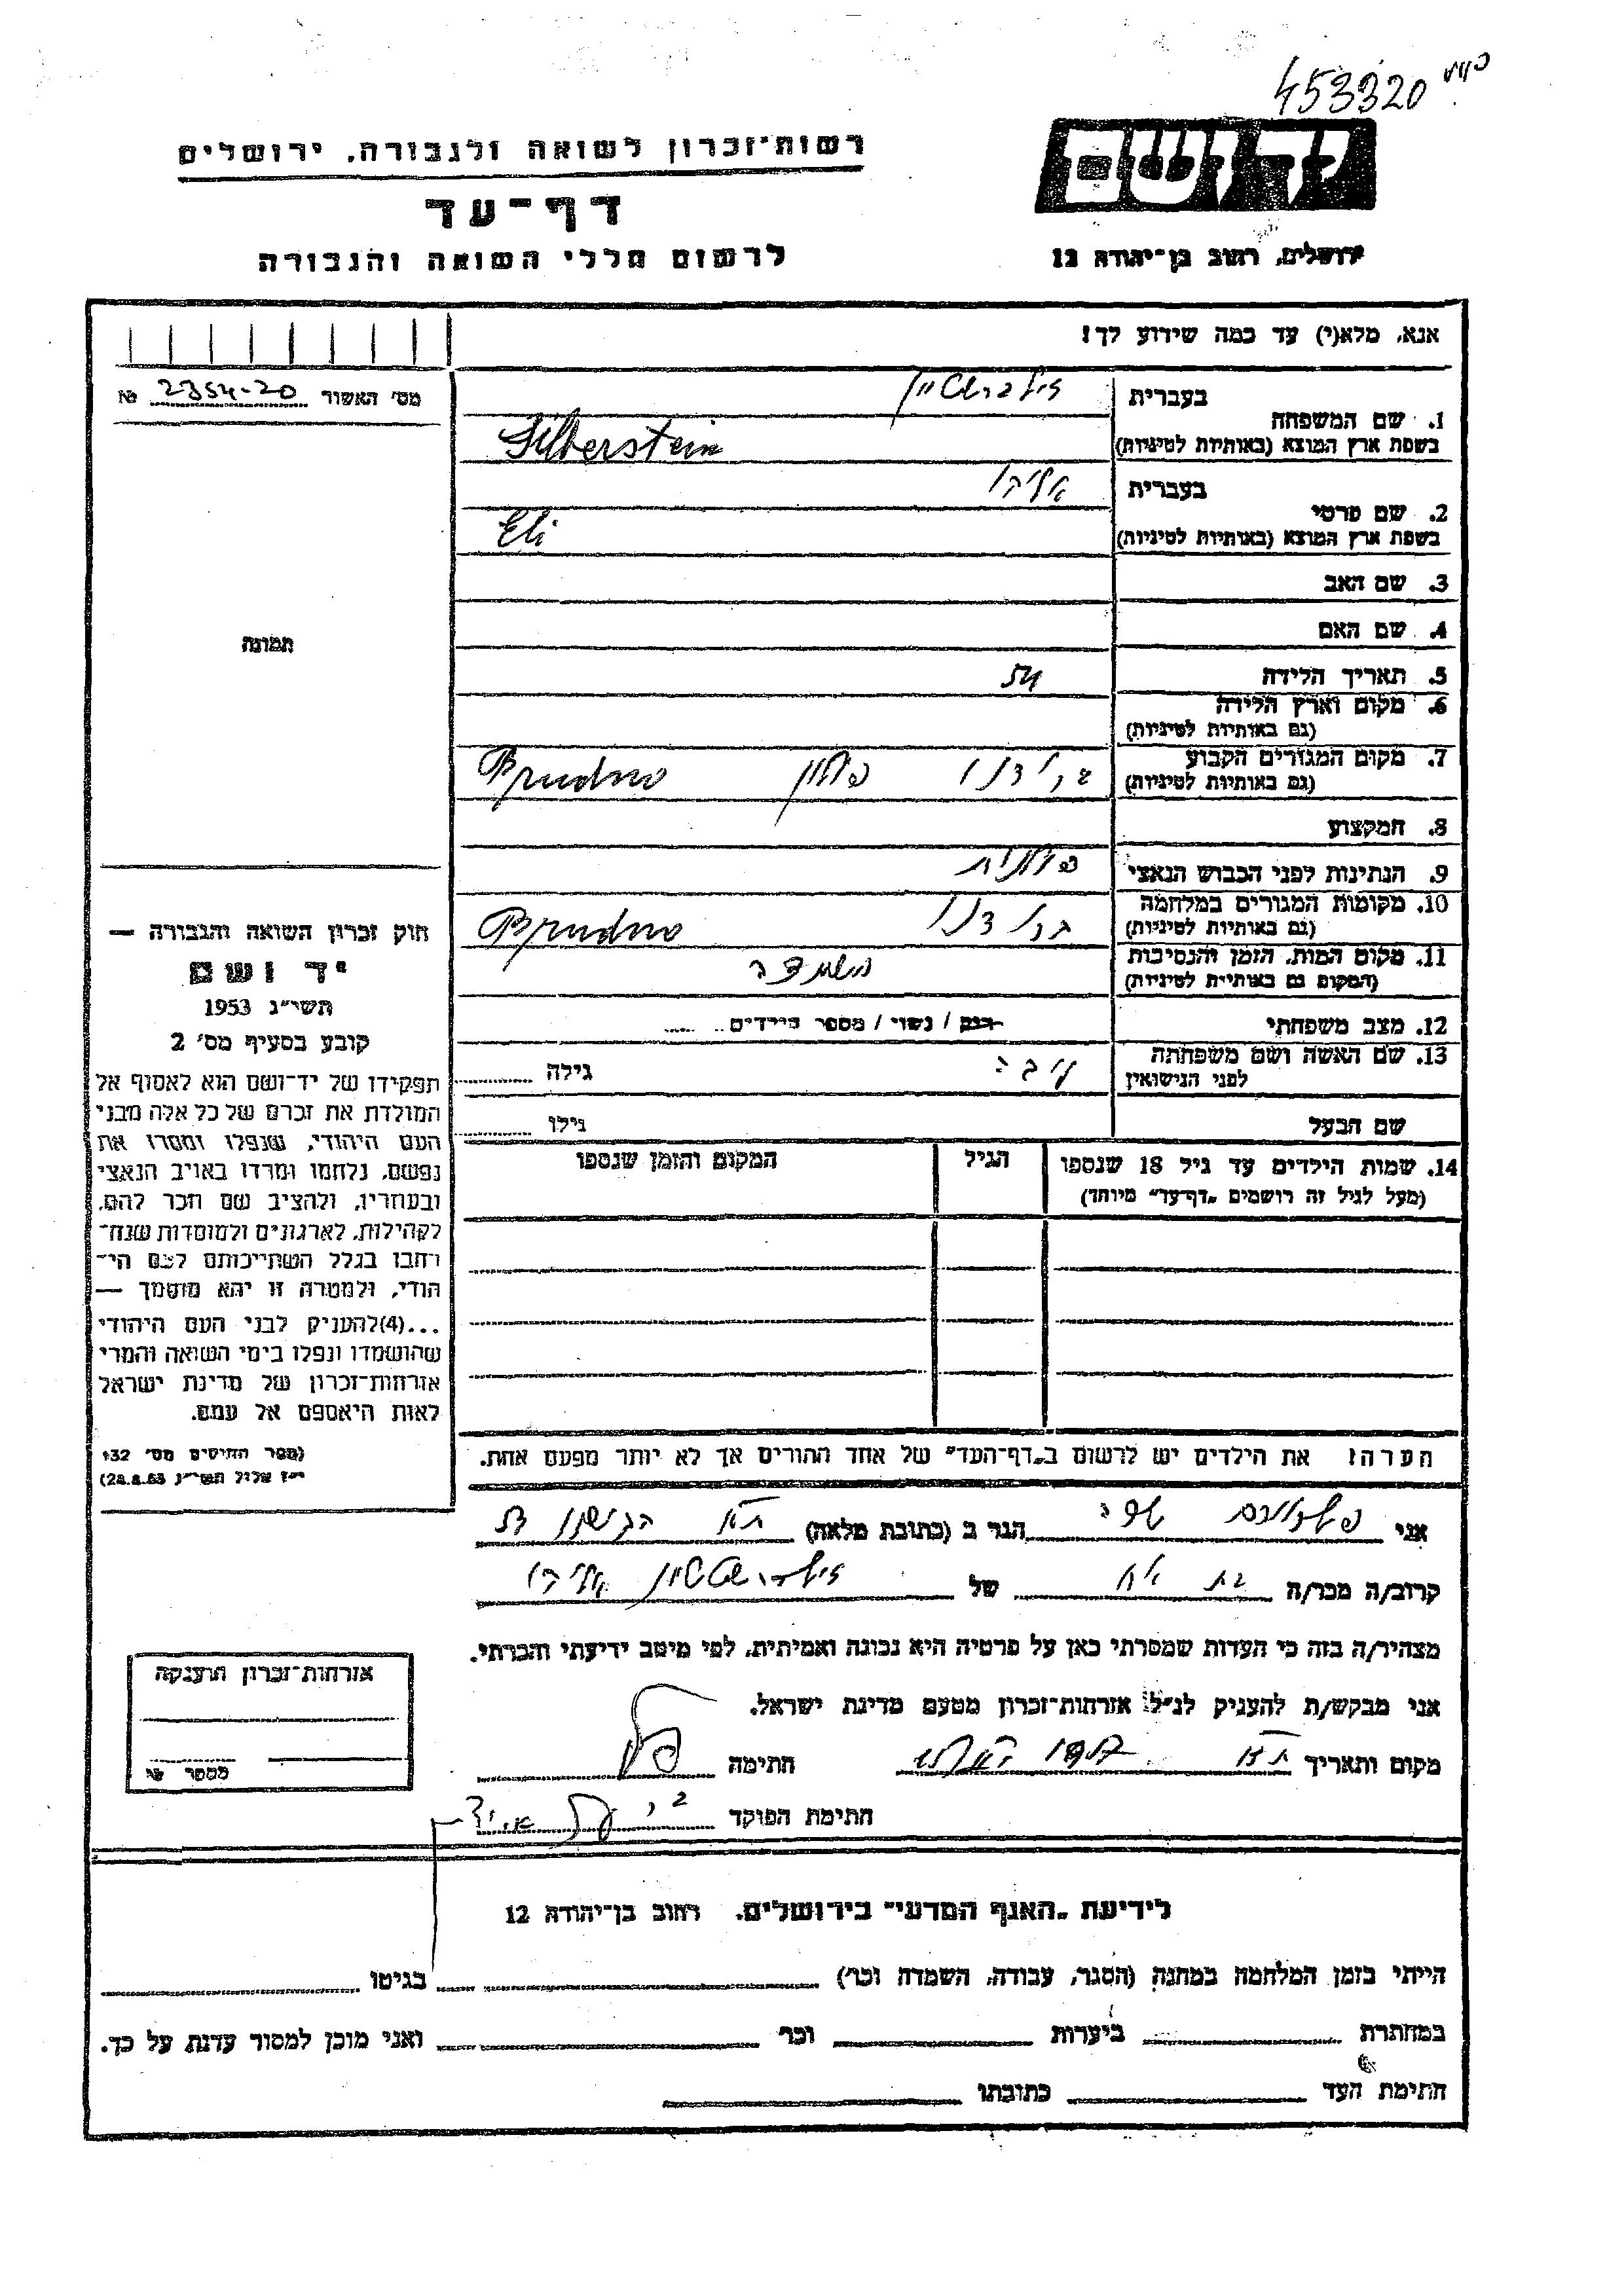 453320
רשות־זכרון לשואה ולגבורה, ירושלים
יד ושם
דף־עד
לרשום חללי השואה והגבורה
ירושלים, רחוב בן־יהודה 12
אנא, מלא(י) עד כמה שידוע לך!
מס' האשור 2354-20 №
בעברית זילברשטיין
1. שם המשפחה
בשפת ארץ המוצא (באותיות לטיניות) Silberstein
בעברית אליהו
2. שם פרטי
בשפת ארץ המוצא (באותיות לטיניות) Eli
3. שם האב
4. שם האם
תמונה
5. תאריך הלידה
6. מקום וארץ הלידה
(גם באותיות לטיניות)
7. מקום המגורים הקבוע
(גם באותיות לטיניות) פולין Prudno
8. המקצוע
9. הנתינות לפני הכבוש הנאצי פולנית
10. מקומות המגורים במלחמה
(גם באותיות לטיניות) Prudno
11. מקום המות, הזמן והנסיבות
(המקום גם באותיות לטיניות)
12. מצב משפחתי רווק / נשוי / מספר הילדים
13. שם האשה ושם משפחתה
לפני הנישואין גילה
שם הבעל גילו
14. שמות הילדים עד גיל 18 שנספו הגיל המקום והזמן שנספו
(מעל לגיל זה רושמים „דף־עד" מיוחד)
הערה: את הילדים יש לרשום ב„דף־העד" של אחד ההורים אך לא יותר מפעם אחת.
חוק זכרון השואה והגבורה —
יד ושם
תשי"ג 1953
קובע בסעיף מס' 2
תפקידו של יד־ושם הוא לאסוף אל
המולדת את זכרם של כל אלה מבני
העם היהודי, שנפלו ומסרו את
נפשם, נלחמו ומרדו באויב הנאצי
ובעוזריו, ולהציב שם וזכר להם,
לקהילות, לארגונים ולמוסדות שנח־
רבו בגלל השתייכותם לעם הי־
הודי, ולמטרה זו יהא מוסמך —
...(4)להעניק לבני העם היהודי
שהושמדו ונפלו בימי השואה והמרי
אזרחות־זכרון של מדינת ישראל
לאות היאספם אל עמם.
(ספר החוקים מס' 132
י"ז אלול תשי"ג 28.8.53)
אני הגר ב (כתובת מלאה)
קרוב/ה מכר/ה של זילברשטיין אליהו
מצהיר/ה בזה כי העדות שמסרתי כאן על פרטיה היא נכונה ואמיתית, לפי מיטב ידיעתי והכרתי.
אני מבקש/ת להעניק לנ"ל אזרחות־זכרון מטעם מדינת ישראל.
מקום ותאריך חתימה
חתימת הפוקד
אזרחות־זכרון הוענקה
מספר №
לידיעת „האגף המדעי" בירושלים, רחוב בן־יהודה 12
הייתי בזמן המלחמה במחנה (הסגר, עבודה, השמדה וכו') בגיטו
במחתרת ביערות וכו' ואני מוכן למסור עדות על כך.
חתימת העד כתובתו